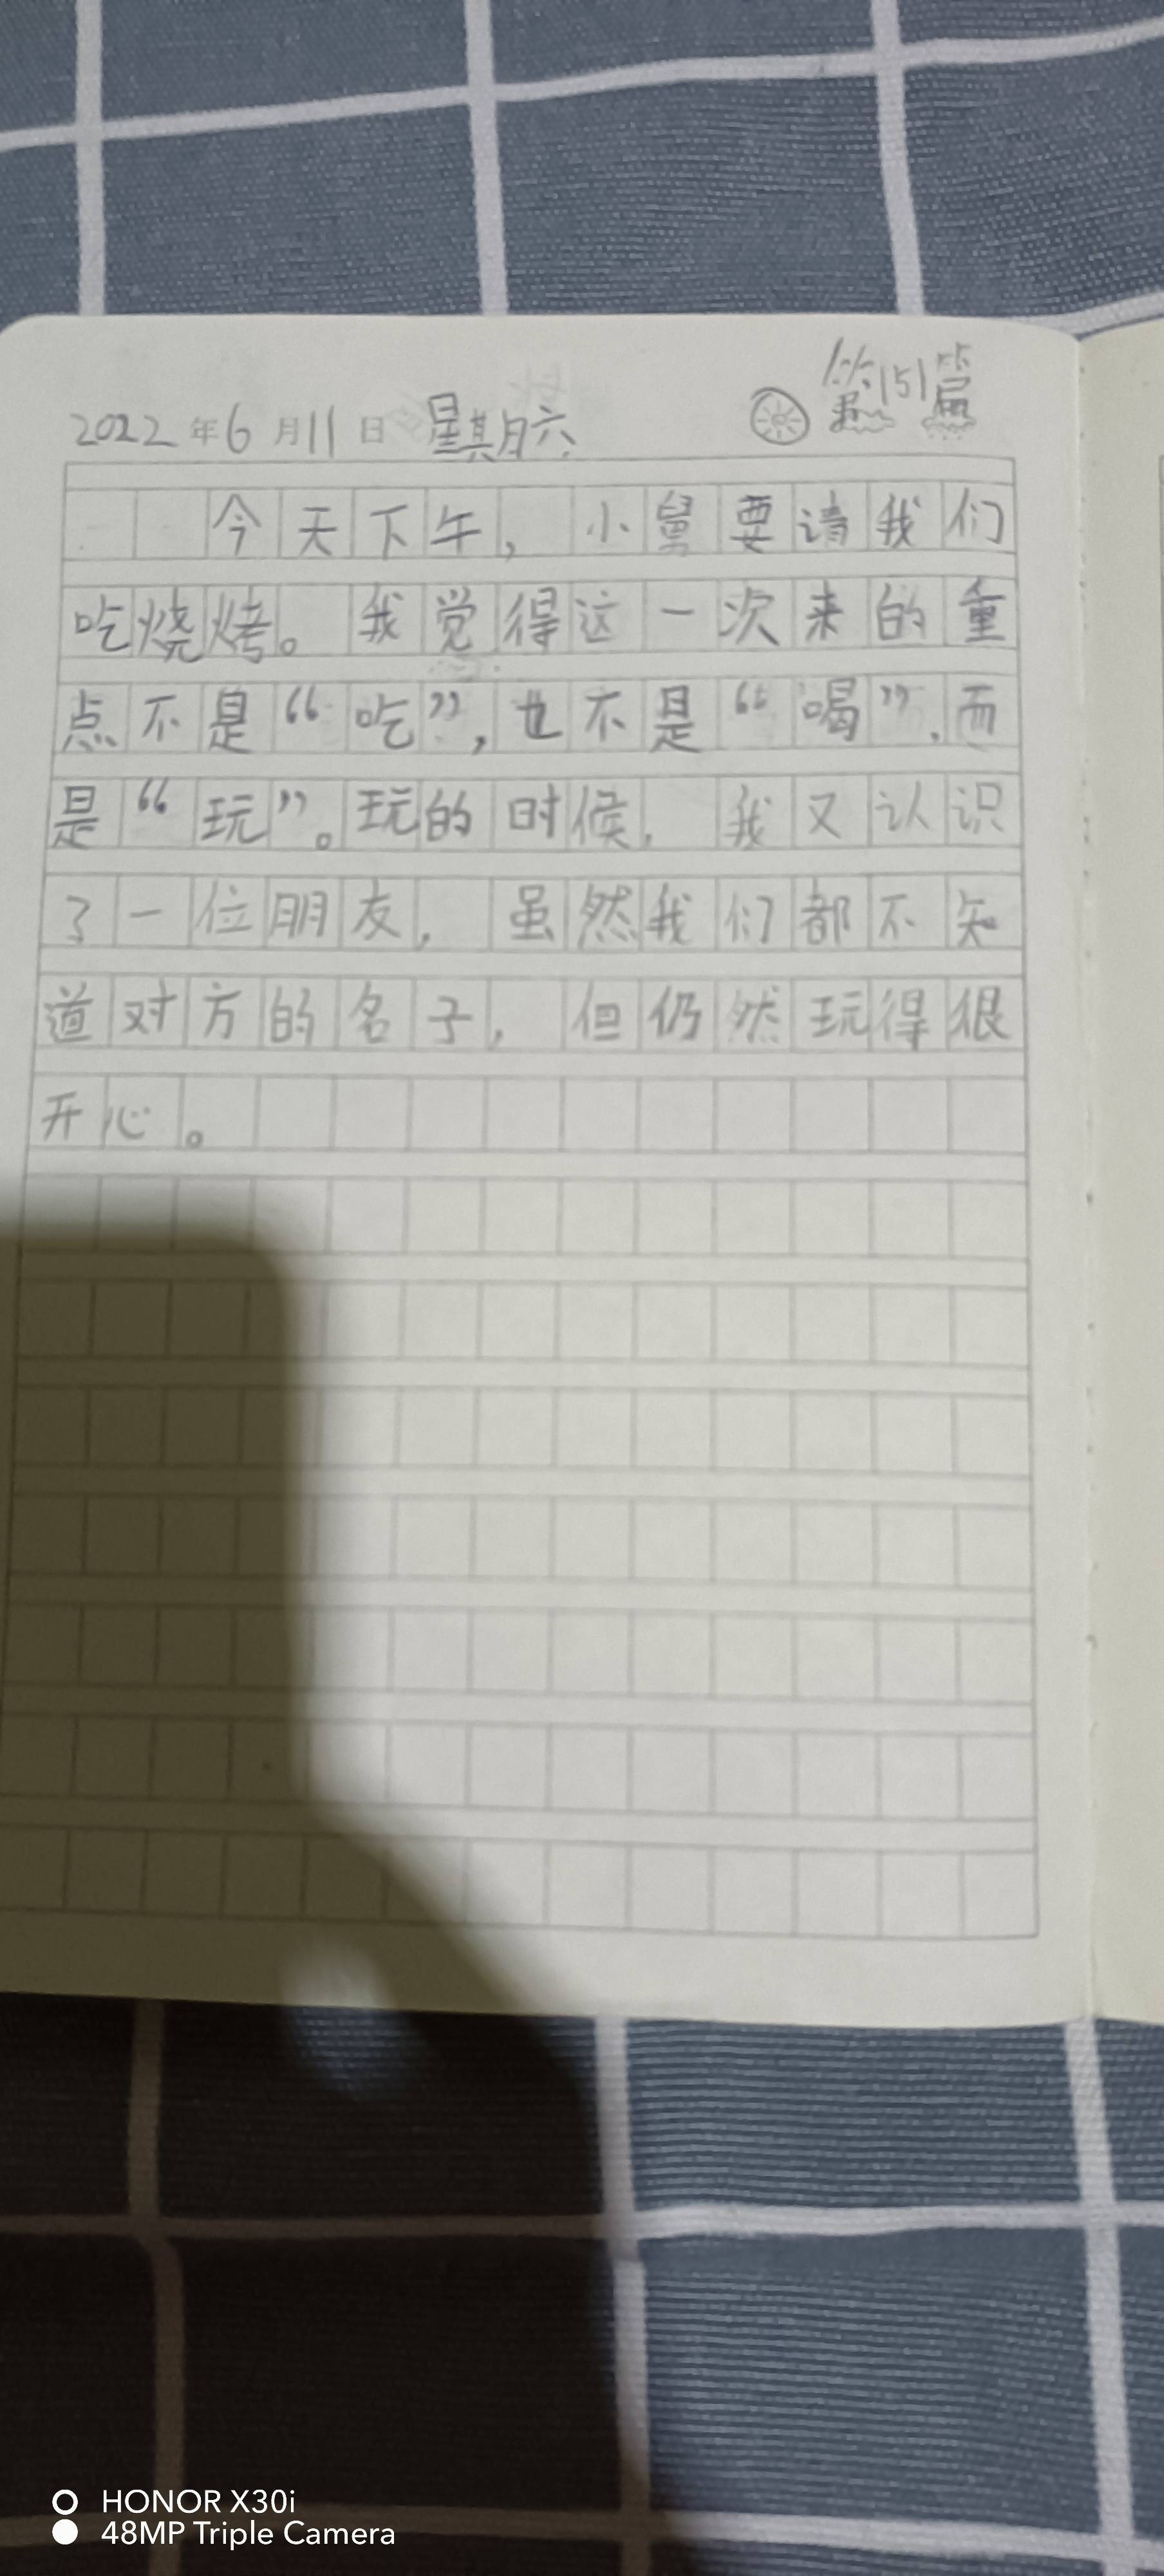 第151篇
2022年6月11日 星期六
今天下午，小舅要请我们
吃烧烤。我觉得这一次来的重
点不是“吃”，也不是“喝”，而
是“玩”。玩的时候，我又认识
了一位朋友，虽然我们都不知
道对方的名子，但仍然玩得很
开心。
HONOR X30i
48MP Triple Camera